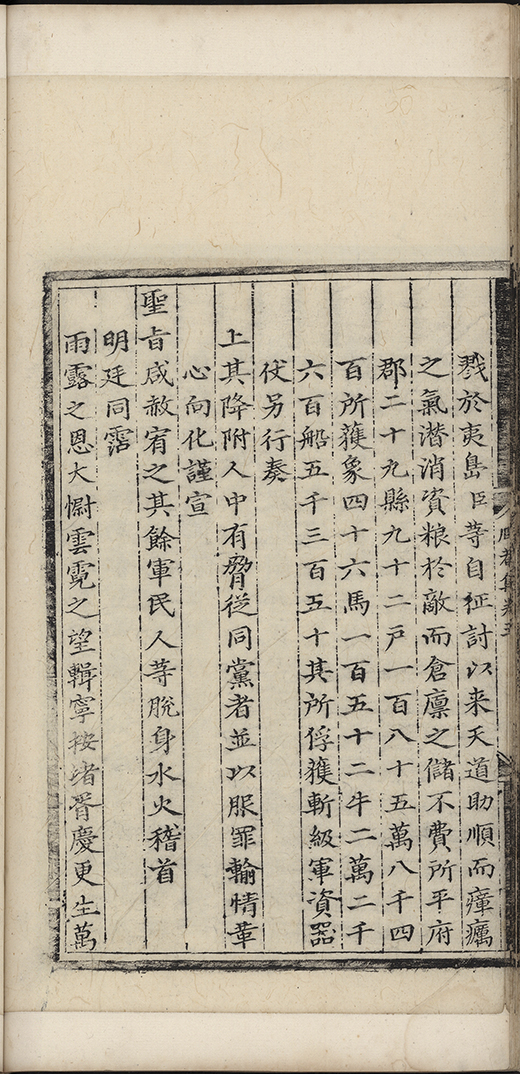 戮於夷島臣等自征討以来天道助順而瘴癘
之氣潜消資粮於敵而倉廪之儲不費所平府
郡二十九縣九十二戸一百八十五萬八千四
百所獲象四十六馬一百五十二牛二萬二千
六百船五千三百五十其所俘獲斬級軍資器
伏另行奏
上其降附人中有脅從同黨者並以服罪輸情革
心向化謹宣
聖㫖咸赦宥之其餘軍民人等脫身水火稽首
明廷同霑
雨露之恩大慰雲霓之望輯寧按堵胥慶更生萬